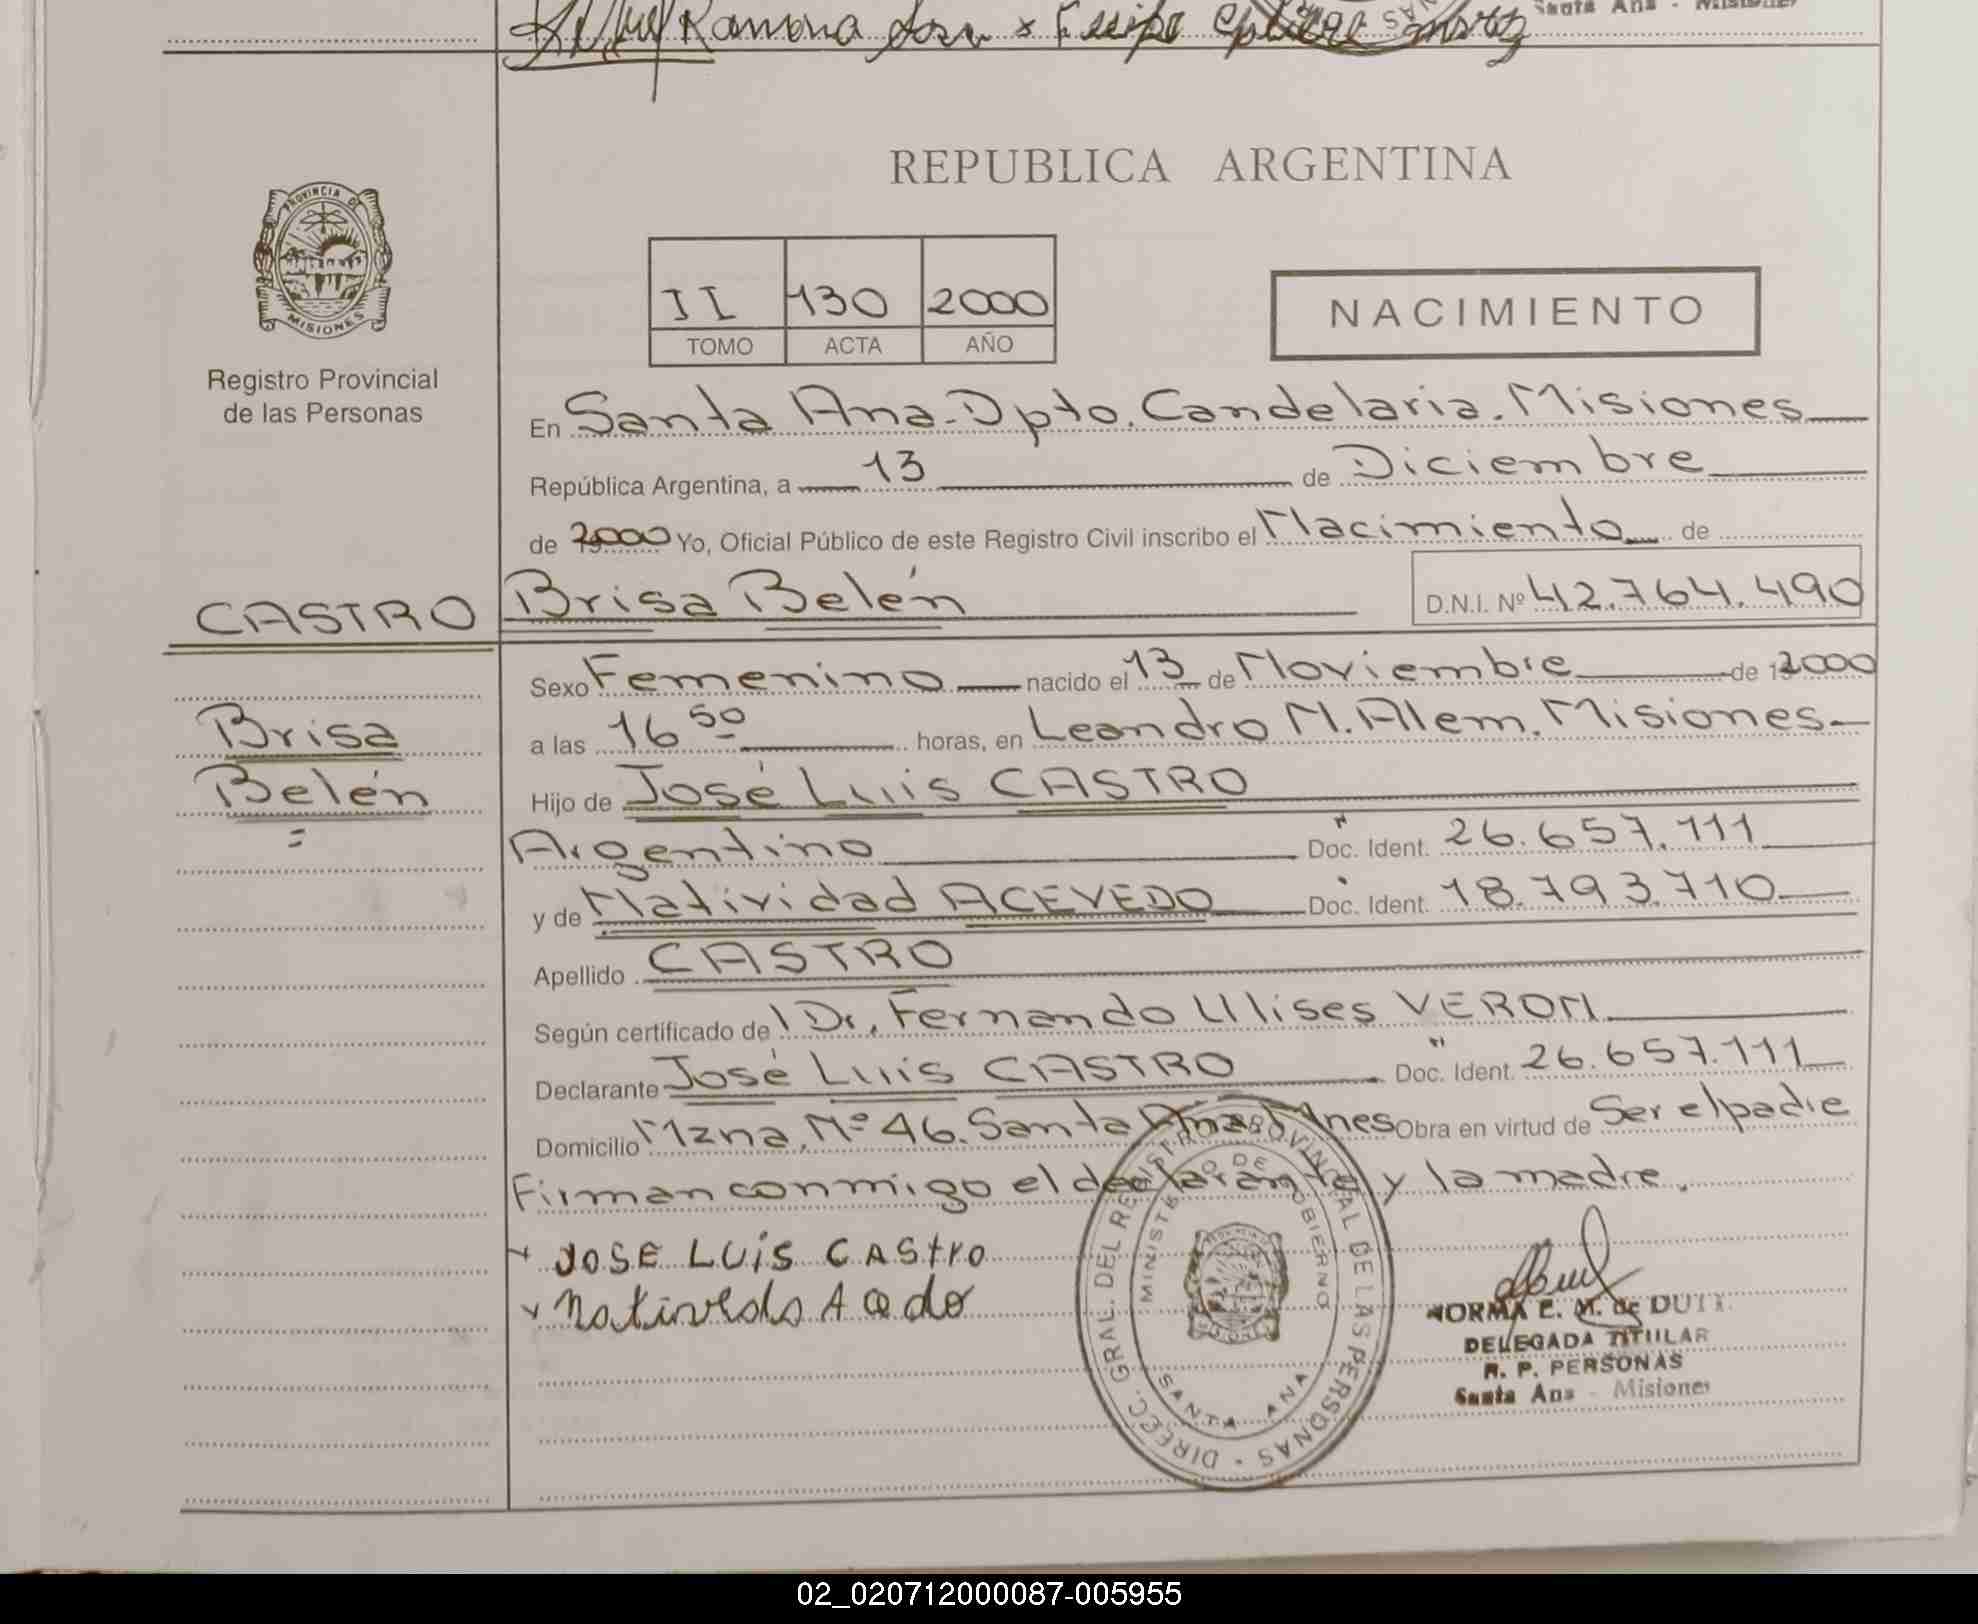 Ramona
Santa Ana - Misiones
REPUBLICA ARGENTINA
PROVINCIA DE
MISIONES
Registro Provincial
de las Personas
II 130 2000
TOMO ACTA AÑO
NACIMIENTO
En Santa Ana. Dpto. Candelaria. Misiones
República Argentina, a 13 de Diciembre
de 2000 Yo, Oficial Público de este Registro Civil inscribo el Nacimiento de
CASTRO Brisa Belén D.N.I. Nº 42.764.490
Sexo Femenino nacido el 13 de Noviembre de 2000
Brisa
a las 16 50 horas, en Leandro N. Alem. Misiones
Belén
Hijo de José Luis CASTRO
Argentino Doc. Ident. 26.657.111
y de Natividad ACEVEDO Doc. Ident. 18.793.710
Apellido CASTRO
Según certificado del Dr. Fernando Ulises VERON
Declarante José Luis CASTRO Doc. Ident. 26.657.111
Domicilio Mzna, Nº 46. Santa Ana. Mnes Obra en virtud de Ser el padre
Firman conmigo el declarante y la madre.
JOSE LUiS CAStro
DIRECC. GRAL. DEL REGISTRO PROVINCIAL DE LAS PERSONAS
MINISTERIO DE GOBIERNO
SANTA ANA
NORMA E. M. de
DELEGADA TITULAR
R. P. PERSONAS
Santa Ana - Misiones
02_020712000087-005955